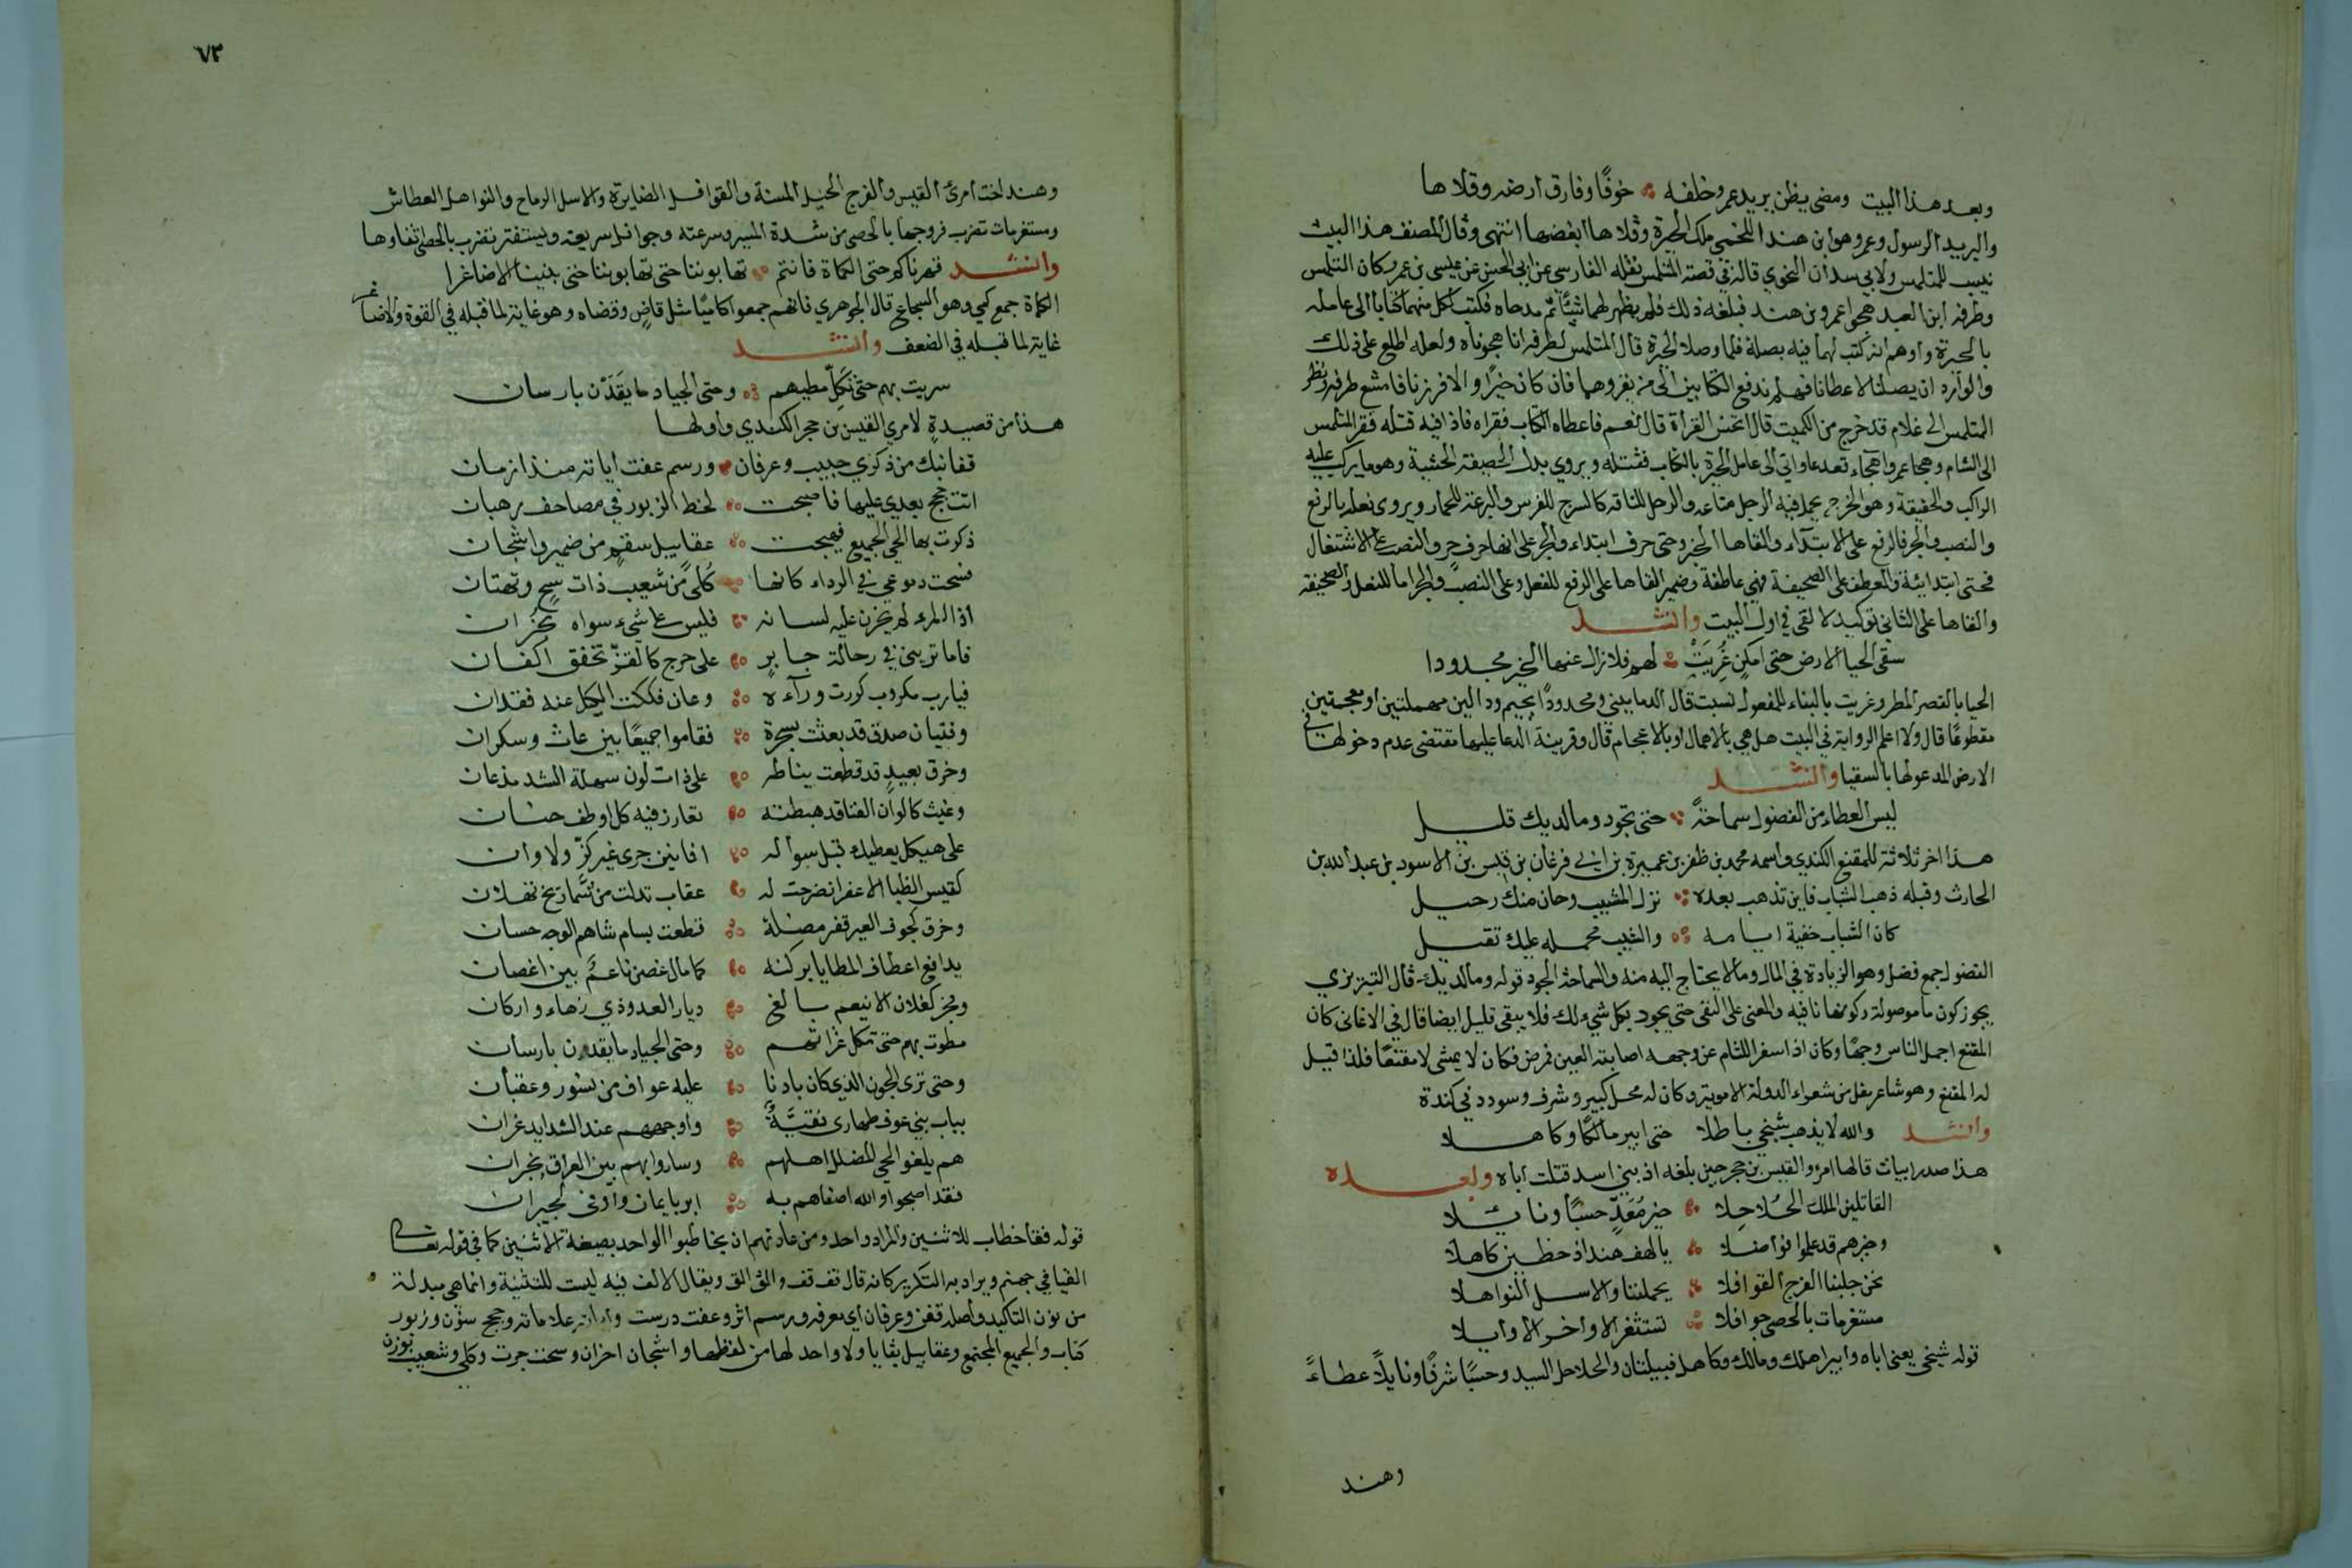 وبعد هذا البيت ومضى يظن بريد عمرو خلفه خوفًا وفارق ارضه وقلاها
والبريد الرسول وعمرو هو ابن هند اللخمي ملك الحيرة وقلاها ابغضها انتهى وقال المصنف هذا البيت
نسب للمتلمس ولابي سدان النحوي قاله في قصة المتلمس نقله الفارسي عن ابي الحسن عن عيسى بن عمر وكان المتلمس
وطرفه ابن العبد هجوا عمرو بن هند فبلغه ذلك فلم يظهر لهما شيئًا ثم مدحاه فكتب لكل منهما كتابا الى عامله
بالحيرة واوهم انه كتب لهما فيه بصلة فلما وصلا الحيرة قال المتلمس لطرفه انا هجوناه ولعله اطلع على ذلك
والو اراد ان يصلنا لاعطانا فهلم ندفع الكتابين الى من يقروهما فان كان خيرًا والا فررنا فامتنع طرفه ونظر
المتلمس الى غلام قد خرج من المكتب قال اتحسن القراة قال نعم فاعطاه الكتاب فقراه فاذا فيه قتله ففر المتلمس
الى الشام وهجا عمروا هجاء تعد عاواتى الى عامل الحيرة بالكتاب فقتله ويروي بدل الصحيفة الحشية وهو ما يركب عليه
الراكب والحقيقة وهو الخرج يحمل فيه الرجل متاعه والرحل للناقة كالسرج للفرس والبرعة للحمار ويروى نعله بالرفع
والنصب والجر فالرفع على الابتداء والقاها الخبر وحتى حرف ابتداء والجر على انها حرف جر والنصب على الاشتغال
فحتى ابتدائية والعطف على الصحيفة فهي عاطفة وضمير القاها على الرفع للنعل وعلى النصب والجر اما للنعل او الصحيفه
والقاها على الثاني توكيد لالقى في اول البيت وانشد
سقى الحيا الارض حتى امكنٍ غُرِيَتْ لهم فلا زال عنها الخير مجدودا
الحيا بالقصر المطر وغريت بالبناء للمفعول نسبت قال الدماميني ومحدودًا بجيم ودالين مهملتين او معجمتين
مقطوعًا قال ولا اعلم الرواية في البيت هل هي بالاهمال او بالاعجام قال وقرينة الدعا عليها مقتضى عدم دخولها في
الارض المدعو لها بالسقيا وانشد
ليس العطاء من الفضول سماحةً حتى تجود وما لديك قليل
هذا اخر ثلاثة للمقنع الكندي واسمه محمد بن ظفر بن عميرة بن ابي فرغان بن قيس بن الاسود بن عبد الله بن
الحارث وقبله ذهب الشباب فاين تذهب بعده نزل المشيب وحان منك رحيل
كان الشباب خفية ايامه والشيب محمله عليك ثقيل
الفضول جمع فضل وهو الزيادة في المال وما لا يحتاج اليه منه والسماحة الجود قوله وما لديك قال التبريزي
يجوز كون ما موصولة وكونها نافيه والمعنى على النفى حتى يجود بكل شيء لك فلا يبقى قليل ايضا قال في الاغانى كان
المقنع اجمل الناس وجهًا وكان اذا سفر اللثام عن وجهه اصابته العين فمرض فكان لا يمشى الا مقنعًا فلذا قيل
له المقنع وهو شاعر مقل من شعراء الدولة الاموية وكان له محل كبير وشرف وسودد في كندة
وانشد والله لا يذهب شيخي باطلا حتى ابير مالكًا وكاهلا
هذا صدر ابيات قالها امرؤ القيس بن حجر حين بلغه ان بني اسد قتلت اباه وبعده
القاتلين الملك الحُلاحِلا خير مَعَدٍّ حسبًا ونائلا
وخيرهم قد علموا فواضلا يا لهف هند اذ خطين كاهلا
نحن جلبنا القرح القوافلا يحملننا والاسل النواهلا
مستفرمات بالحصى جوافلا تستثفر الاواخر الاوايلا
قوله شيخي يعنى اباه وابير اهلك ومالك وكاهل قبيلتان والحلاحل السيد وحسبًا شرفًا ونايلًا عطاءً
وهند
٧٣
وهند اخت امرئ القيس والقرح الخيل المسنة والقوافل الضايرة والاسل الرماح والنواهل العطاش
ومستفرمات تضرب فروجها بالحصى من شدة السير وسرعته وجوافل سريعة ويستثفر تضرب بالحصى اثفارها
وانشد قهرناكم حتى الكماة فانتم تهابوننا حتى تهابوننا حتى بنينا الاصاغرا
الكماة جمع كمي وهو الشجاع قال الجوهري فانهم جمعوا كاميًا مثل قاضٍ وقضاه وهو غاية لما قبله في القوة والاصاغر
غاية لما قبله في الضعف وانشد
سريت بهم حتى تَكِلّ مطيهم وحتى الجياد ما يقَدْن بارسان
هذا من قصيدةٍ لامري القيس بن حجر الكندي واولها
قفا نبك من ذكرى حبيب وعرفان ورسم عفت اياته منذ ازمان
اتت حجج بعدي عليها فاصبحت كخط الزبور في مصاحف رهبان
ذكرت بها الحي الجميع فهيجت عقابيل سقمٍ من ضمير واشجان
فسحت دموعي في الرداء كانها كُلىً من شعيبٍ ذات سحٍ وتهتان
اذا المرء لم يخزن عليه لسانه فليس على شيء سواه بخزان
فاما تريني في رحالة جابرٍ على حرج كالقرّ تخفق اكفان
فيارب مكروب كررت وراءه وعان فككت الكبل عنه ففدان
وفتيان صدق قد بعثت بسحرة فقاموا جميعًا بين عاث وسكران
وخرق بعيدٍ قد قطعت نياطه على ذات لون سهلة الشد مذعان
وغيث كالوان الفنا قد هبطته تعاور فيه كل اوطف حنان
على هيكل يعطيك قبل سواله افانين جرى غير كزٍّ ولا وان
كقيس الظبا الاعفر انضرجت له عقاب تدلت من شماريخ ثهلان
وخرق كجوف العير قفر مضلة قطعت بسام ساهم الوجه حسان
يدافع اعطاف المطايا بركنه كما مال غصن ناعمٌ بين اغصان
ومجر كغلان الانيعم بالغ ديار العدو ذي زهاء واركان
مطوت بهم حتى تكل غزاتهم وحتى الجياد ما يقدن بارسان
وحتى ترى الجون الذي كان بادنا عليه عواف من نسور وعقبان
بباب بني عوف طهارى نقيَّةٌ واوجههم عند الشدايد غران
هم بلغوا الحي المضلل اهلهم وساروا بهم بين العراق ونجران
فقد اصبحوا والله اصفاهم به ابر بايمان واوفى لجيران
قوله قفا خطاب للاثنين والمراد واحد ومن عادتهم ان يخاطبوا الواحد بصيغة الاثنين كما في قوله تعالى
القيا في جهنم ويراد به التكرير كانه قال قف قف والق الق ويقال الالف فيه ليست للتثنية وانما هي مبدلة
من نون التاكيد واصله قفن وعرفان اي معرفه ورسم اثر وعفت درست واياته علاماته وحجج سنون وزبور
كتاب والجميع المجتمع وعقابيل بقايا ولا واحد لها من لفظها واشجان احزان وسحت جرت وكلى وشعيب بوزن